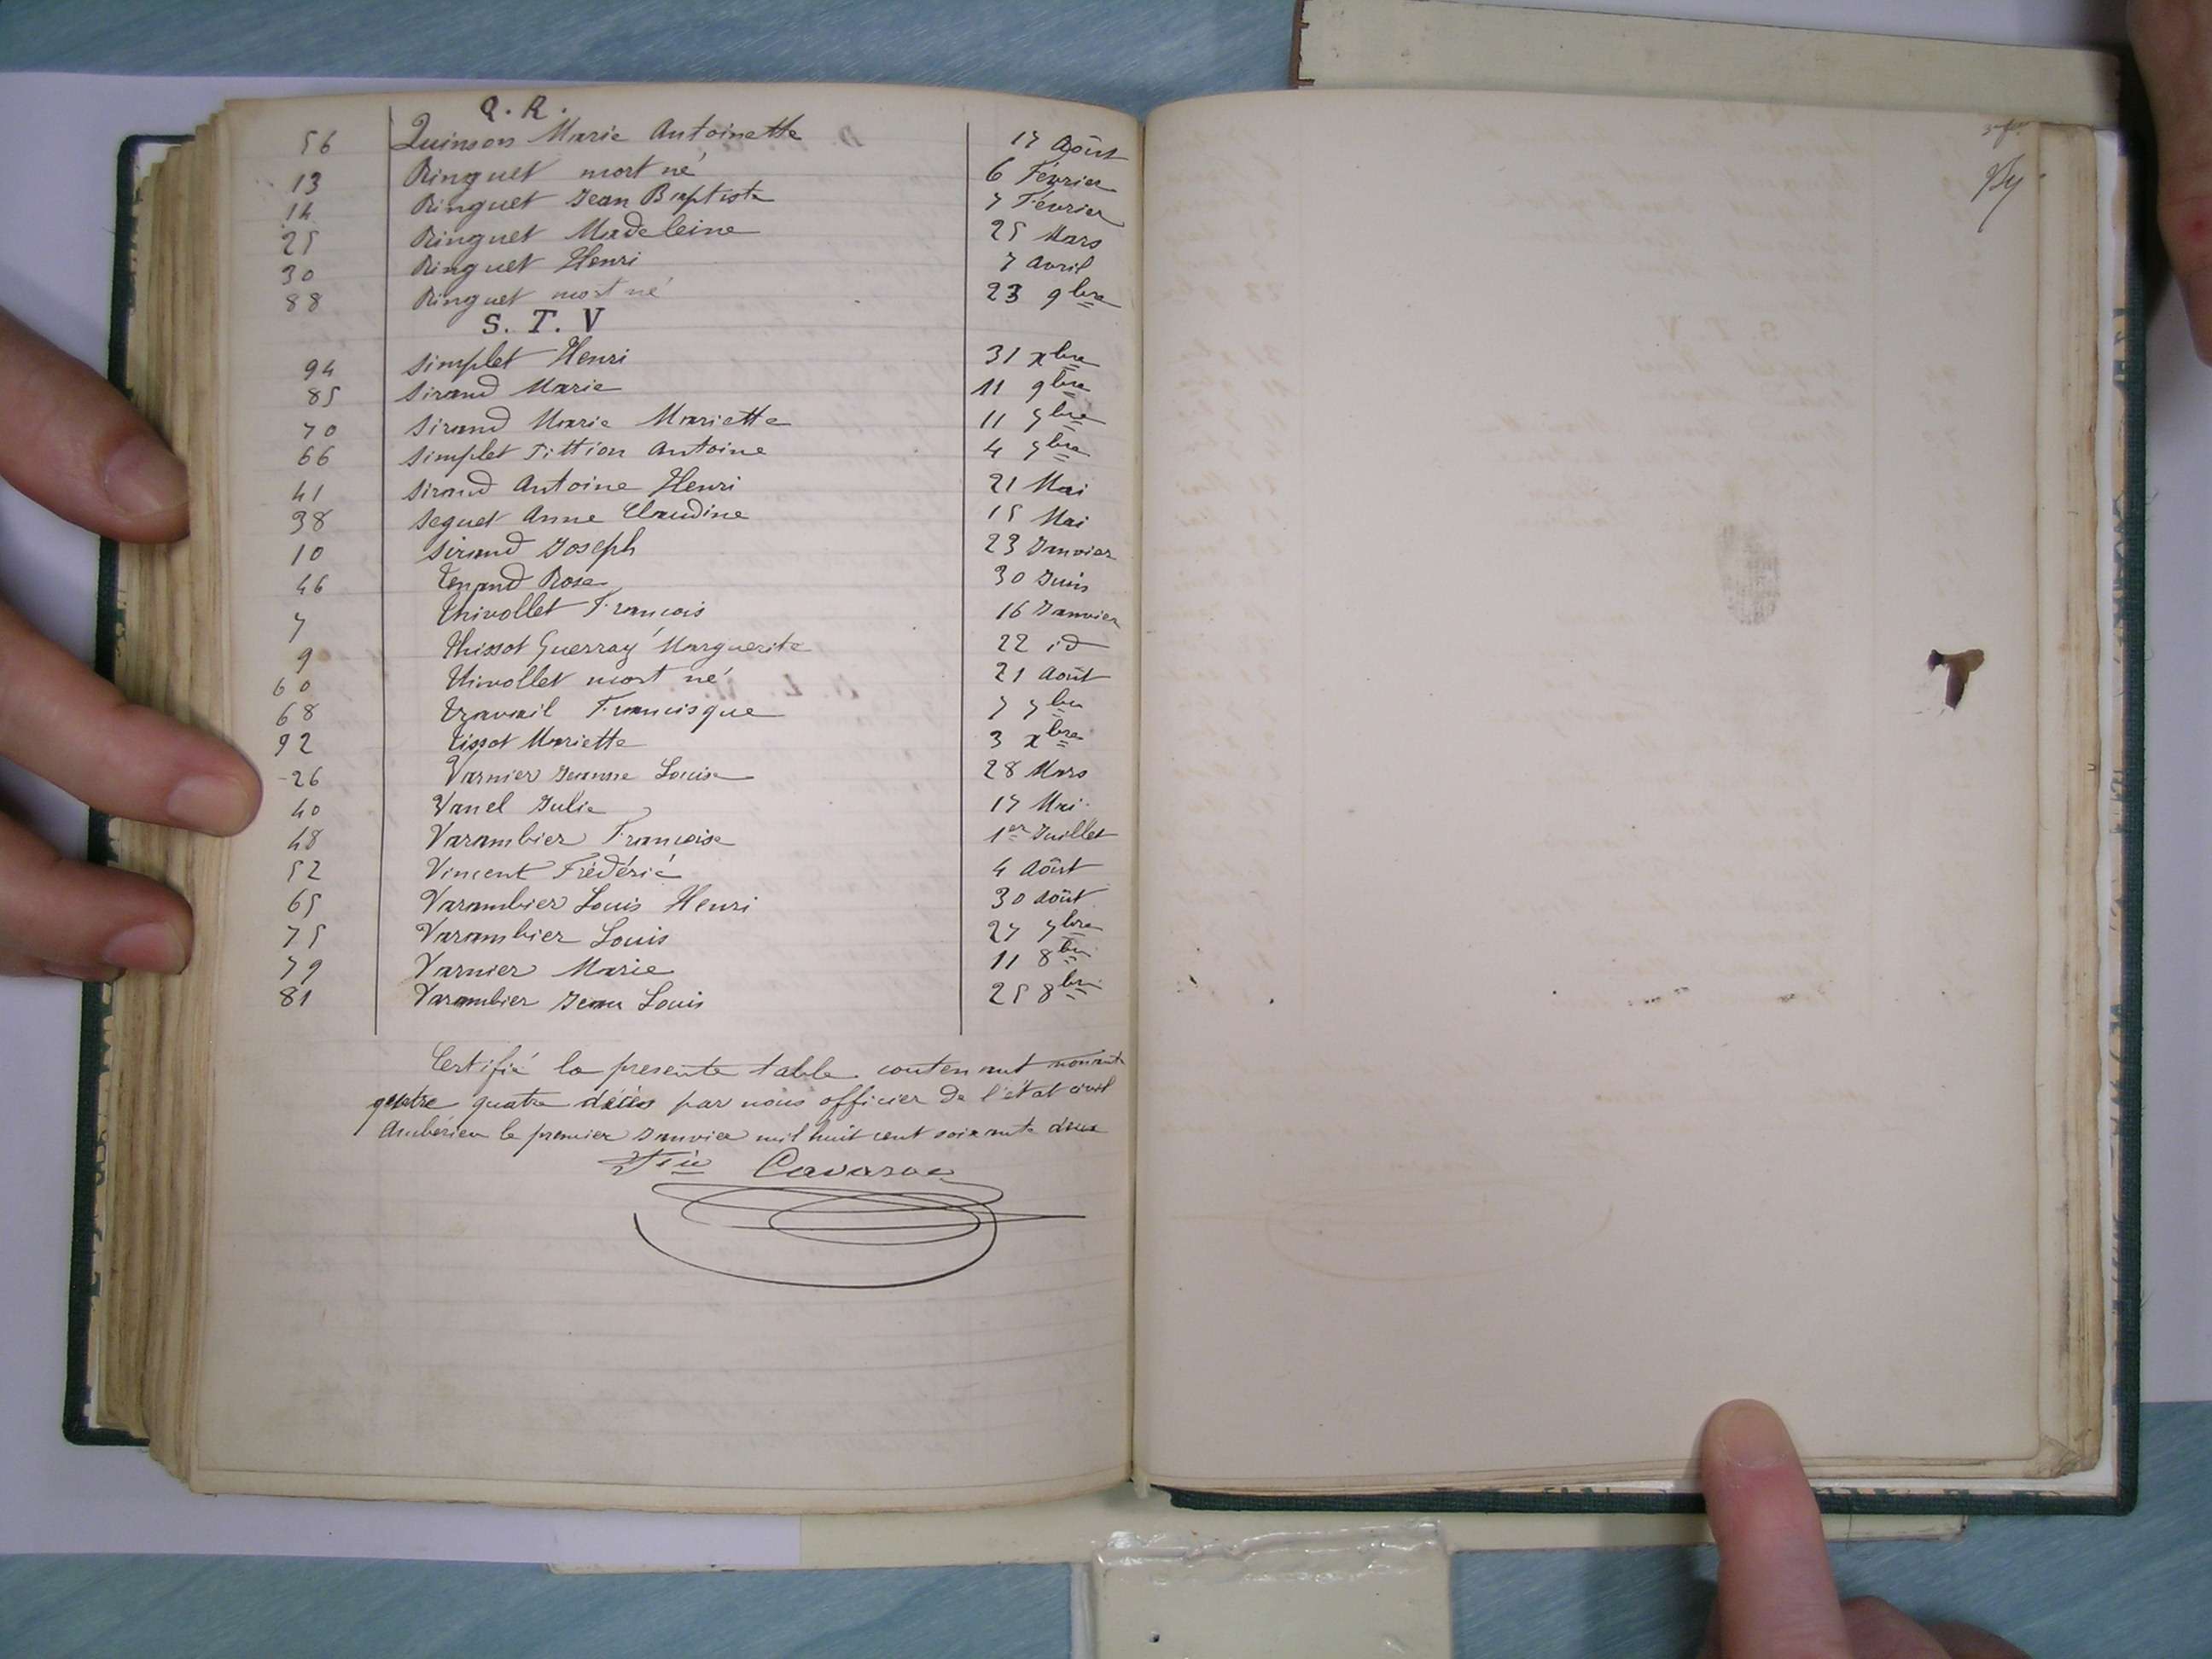 Q. R.
56 Quinson Marie Antoinette 17 Août
13 Ringuet mort né 6 Février
14 Ringuet Jean Baptiste 7 Février
25 Ringuet Madeleine 25 Mars
30 Ringuet Henri 7 Avril
88 Ringuet mort né 23 9bre
S. T. V
94 Simplet Henri 31 xbre
85 Sirand Marie 11 9bre
70 Sirand Marie Mariette 11 7bre
66 Simplet Tittion Antoine 4 7bre
41 Sirand Antoine Henri 21 Mai
38 Seguet Anne Claudine 15 Mai
10 Sirand Joseph 23 Janvier
46 Tenand Rose 30 Juin
7 Thivollet François 16 Janvier
9 Thissot Guerray Marguerite 22 id
60 Thivollet mort né 21 Août
68 Travail Francisque 7 7bre
92 Tissot Mariette 3 xbre
26 Varnier Jeanne Louise 28 Mars
40 Vanel Julie 17 Mai
48 Varambier Françoise 1er Juillet
52 Vincent Frédéric 4 Août
65 Varambier Louis Henri 30 Août
75 Varambier Louis 27 7bre
79 Varnier Marie 11 8bre
81 Varambier Jean Louis 25 8bre
Certifié la presente table contenant nonante
quatre quatre décès par nous officier de l'état civil
Ambérieu le premier Janvier mil huit cent soixante deux